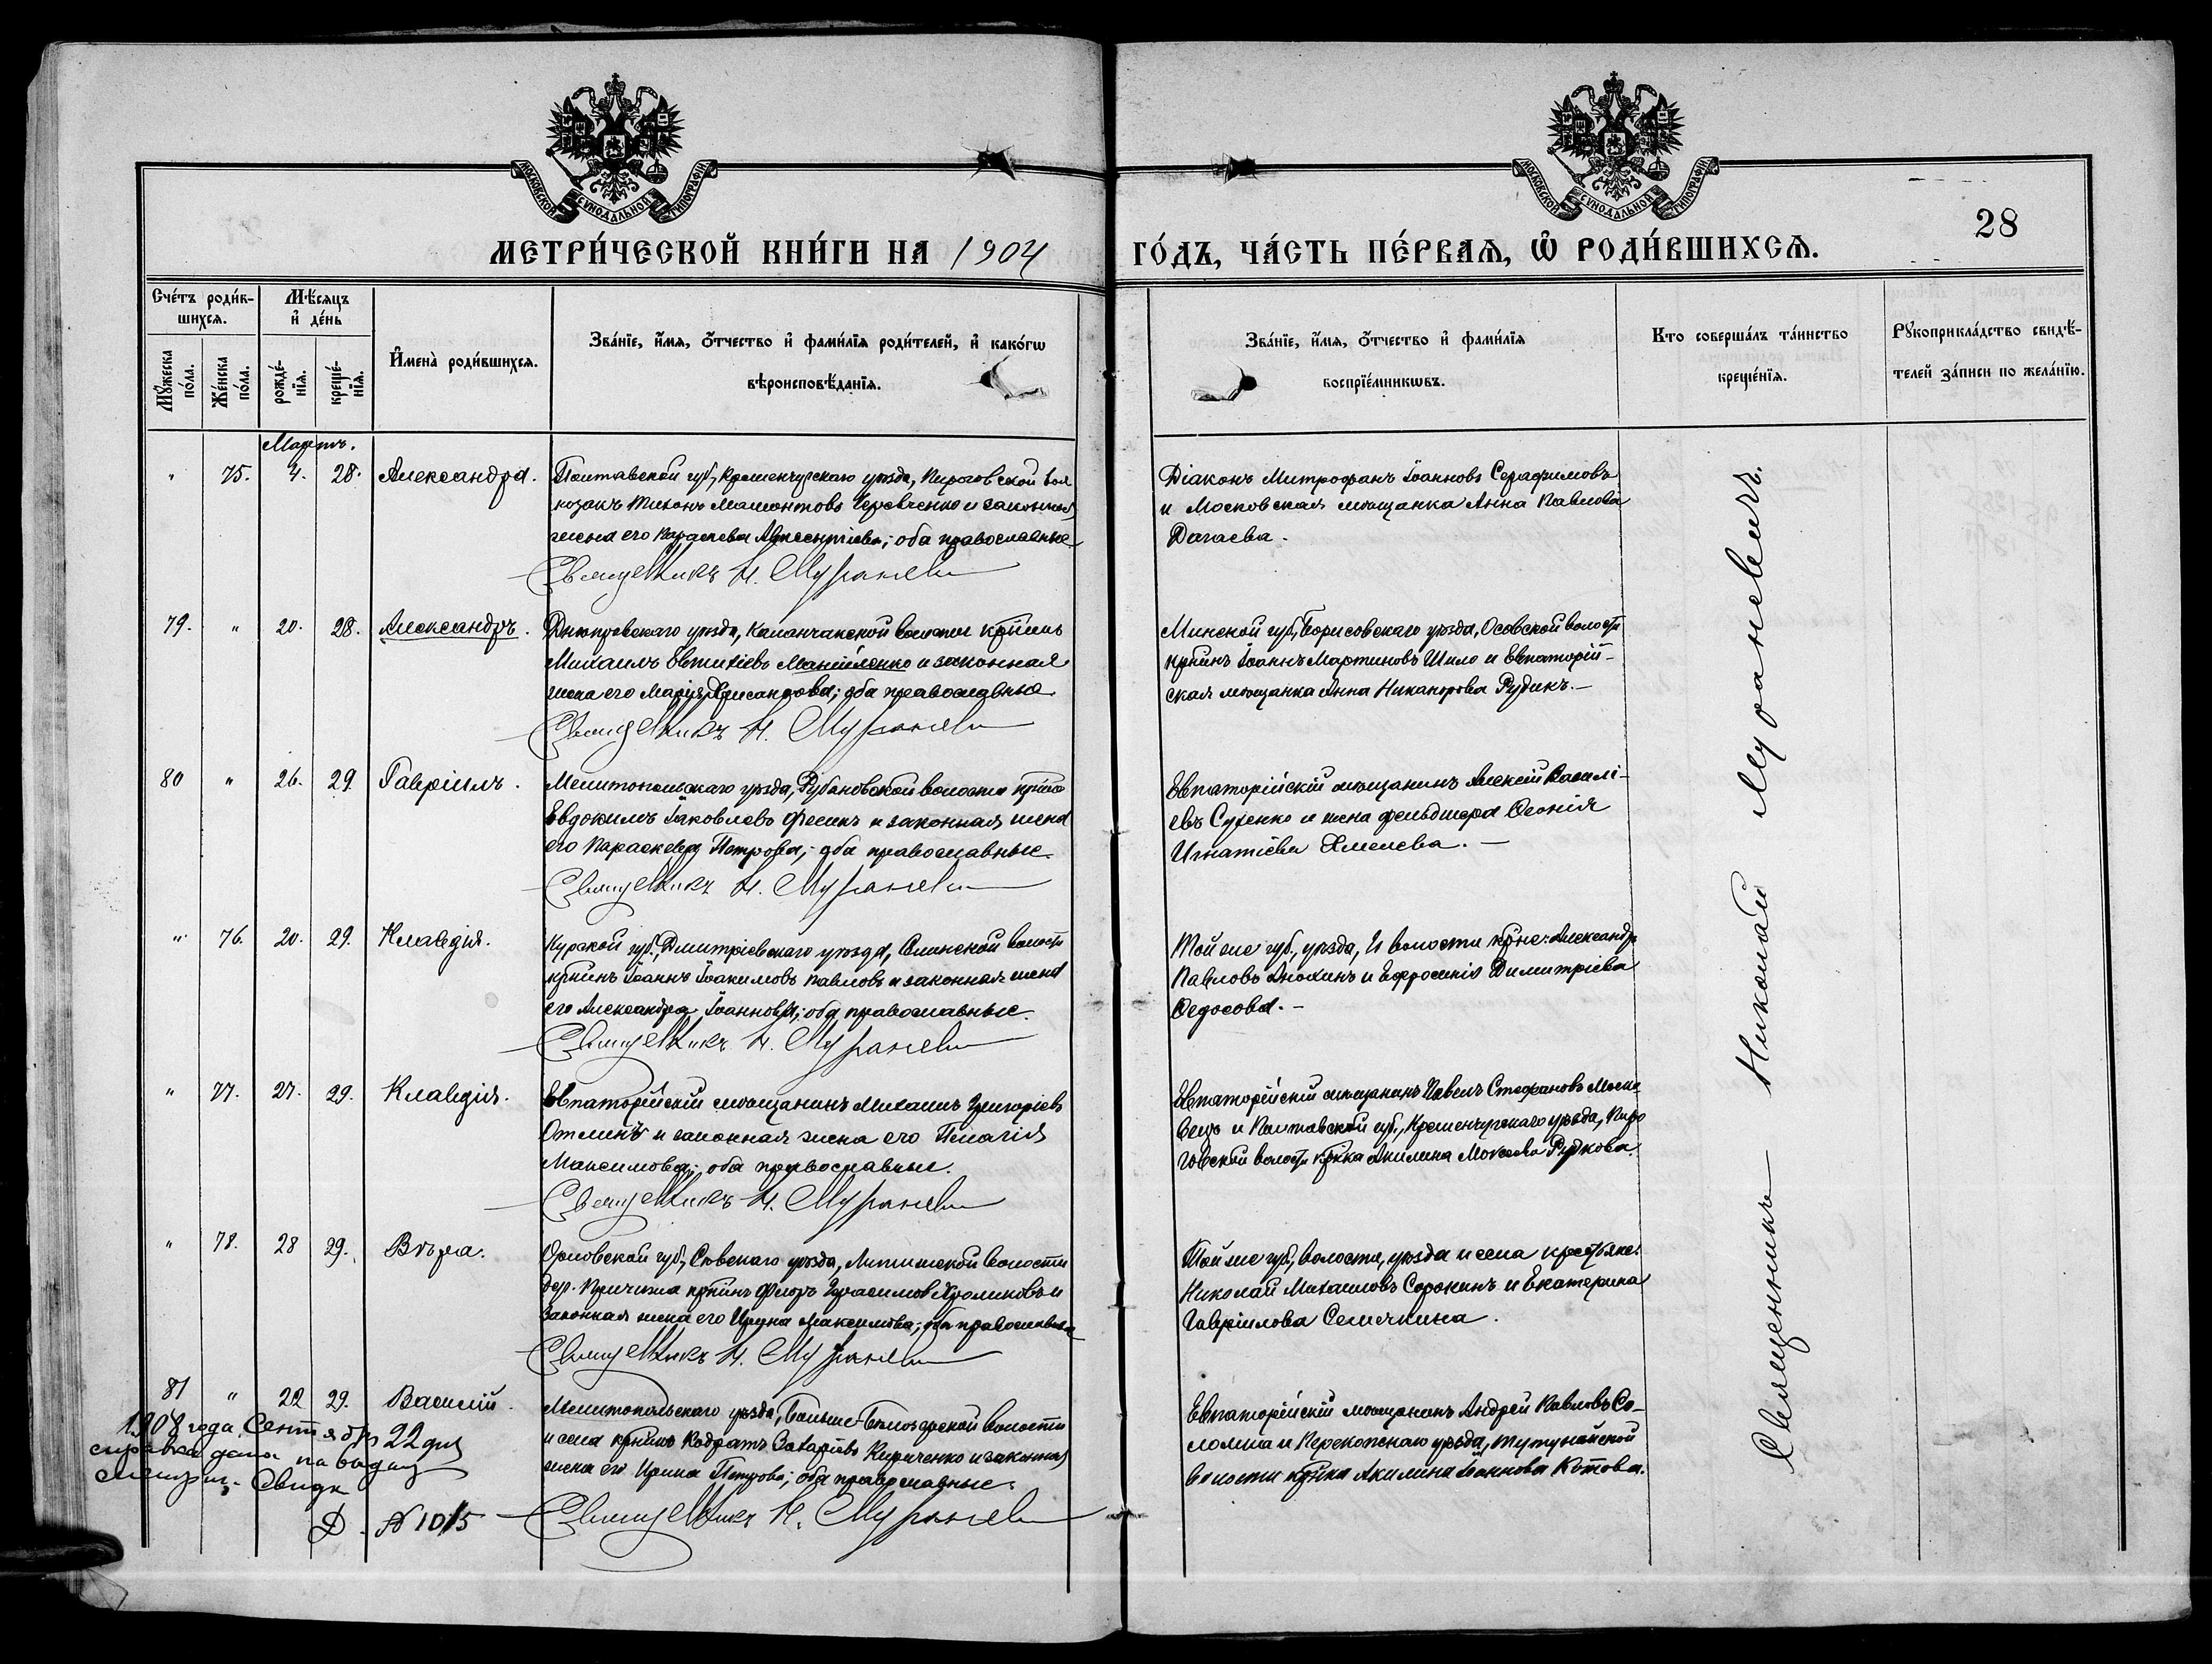 МОСКОВСКОЙ СУНОДАЛЬНОЙ ТИПОГРАФІИ
МОСКОВСКОЙ СУНОДАЛЬНОЙ ТИПОГРАФІИ
28
МЕТРИ́ЧЕСКОЙ КНИ́ГИ НА 1904 ГО́ДЪ, ЧА́СТЬ ПЕ́РВАѦ, Ѽ РОДИ́ВШИХСѦ.
Сче́тъ роди́в-
шихсѧ.
Мѣ́сѧцъ
и҆ де́нь
Мꙋ́жеска
по́ла.
Же́нска
по́ла.
рожде́-
нїѧ.
креще́-
нїѧ.
И҆мена̀ роди́вшихсѧ.
Зва́нїе, и҆́мѧ, ѻ҆́тчество и҆ фами́лїѧ роди́телей, и҆ како́гѡ
вѣроисповѣ́данїѧ.
Зва́нїе, и҆́мѧ, ѻ҆́тчество и҆ фами́лїѧ
воспрїе́мникѡвъ.
Кто соверша́лъ та́инство
креще́нїѧ.
Рꙋкоприкла́дство свидѣ́-
телей за́писи по жела́нїю.
Мартъ.
" 75. 4. 28. Александра.
Полтавской губ., Кременчугскаго уѣзда, Пироговской вол.
козакъ Тихонъ Мамонтовъ и законная
жена его Параскева оба православные
Священникъ Н. Мураневич
Діаконъ Митрофанъ Іоанновъ Серафимовъ
и Московская мѣщанка Анна Павлова
Дагаева.
79. " 20. 28. Александръ.
Днѣпровскаго уѣзда, Каланчакской волости крѣнинъ
Михаилъ Евтихіевъ Манойленко и законная
жена его Марія Хрисанфова; оба православные.
Священникъ Н. Мураневич
Минской губ., Борисовскаго уѣзда, Осовской волости
крѣнинъ Іоаннъ Мартиновъ Шило и Евпаторій-
ская мѣщанка Анна Никанорова Рудикъ.—
80 " 26. 29. Гавріилъ.
Мелитопольскаго уѣзда, Рубановской волости крѣнинъ
Евдокимъ Іаковлевъ Фесикъ и законная жена
его Параскева Петрова; оба православные.
Священникъ Н. Мураневич
Евпаторійскій мѣщанинъ Алексій Василі-
евъ Сухенко и жена фельдшера Ѳеонія
Игнатіева Хмелева.—
" 76. 20. 29. Клавдія.
Курской губ., Дмитріевскаго уѣзда, волости
крѣнинъ Іоаннъ Іоакимовъ Павловъ и законная жена
его Александра Іоаннова; оба православные.
Священникъ Н. Мураневич
Той же губ., уѣзда, и волости крѣне: Александръ
Павловъ Анохинъ и Евфросинія Димитріева
Ѳедосова.—
" 77. 27. 29. Клавдія.
Евпаторійскій мѣщанинъ Михаилъ Григоріевъ
и законная жена его Пелагія
Максимова; оба православные.
Священникъ Н. Мураневич
Евпаторійскій мѣщанинъ Павелъ Стефановъ
и Полтавской губ., Кременчугскаго уѣзда, Пиро
говской волости крѣнка Акилина Рудкова.
" 78. 28 29. Вѣра.
Орловской губ., Сѣвскаго уѣзда, Литижской волости
дер. крѣнинъ Ѳеодоръ Герасимовъ Хроликовъ и
законная жена его Ирина Максимова; оба православные
Священникъ Н. Мураневич
Той же губ., волости, уѣзда и села крестьяне:
Николай Михаиловъ Сорокинъ и Екатерина
Гавріилова Семечкина.
81 " 22 29. Василій.
Мелитопольскаго уѣзда, Больше-Бѣлозерской волости
и села крѣнинъ Кодратъ Захаріевъ Кириченко и законная
жена его Ирина Петрова; оба православные.
Священникъ Н. Мураневич
Евпаторійскій мѣщанинъ Андрей Павловъ Со-
лоха и Перекопскаго уѣзда,
волости крѣнка Акилина Іоаннова Котова.
1908 года Сентября 22 дня
справка дана на выдачу
метрич. Свидѣт
Д. № 1015
Священникъ Николай Мураневичъ.